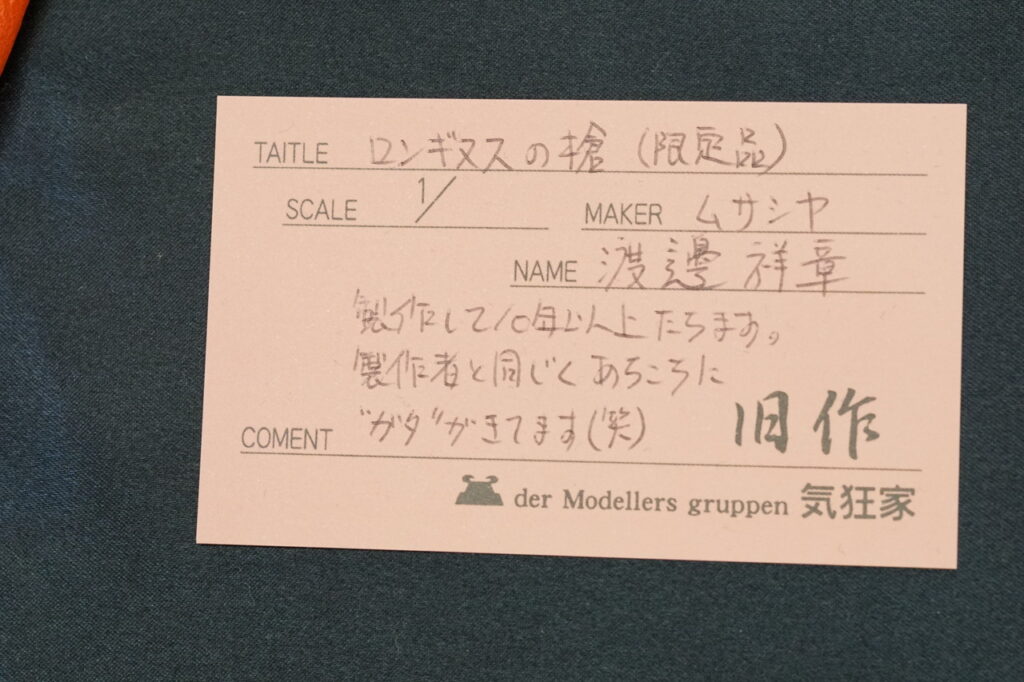 TAITLE ロンギヌスの槍 (限定品)
SCALE 1/
MAKER ムサシヤ
NAME 渡邊祥章
製作して10年以上たちます。
製作者と同じくあちこちに
COMENT "ガタ"がきてます(笑)
旧作
der Modellers gruppen 気狂家